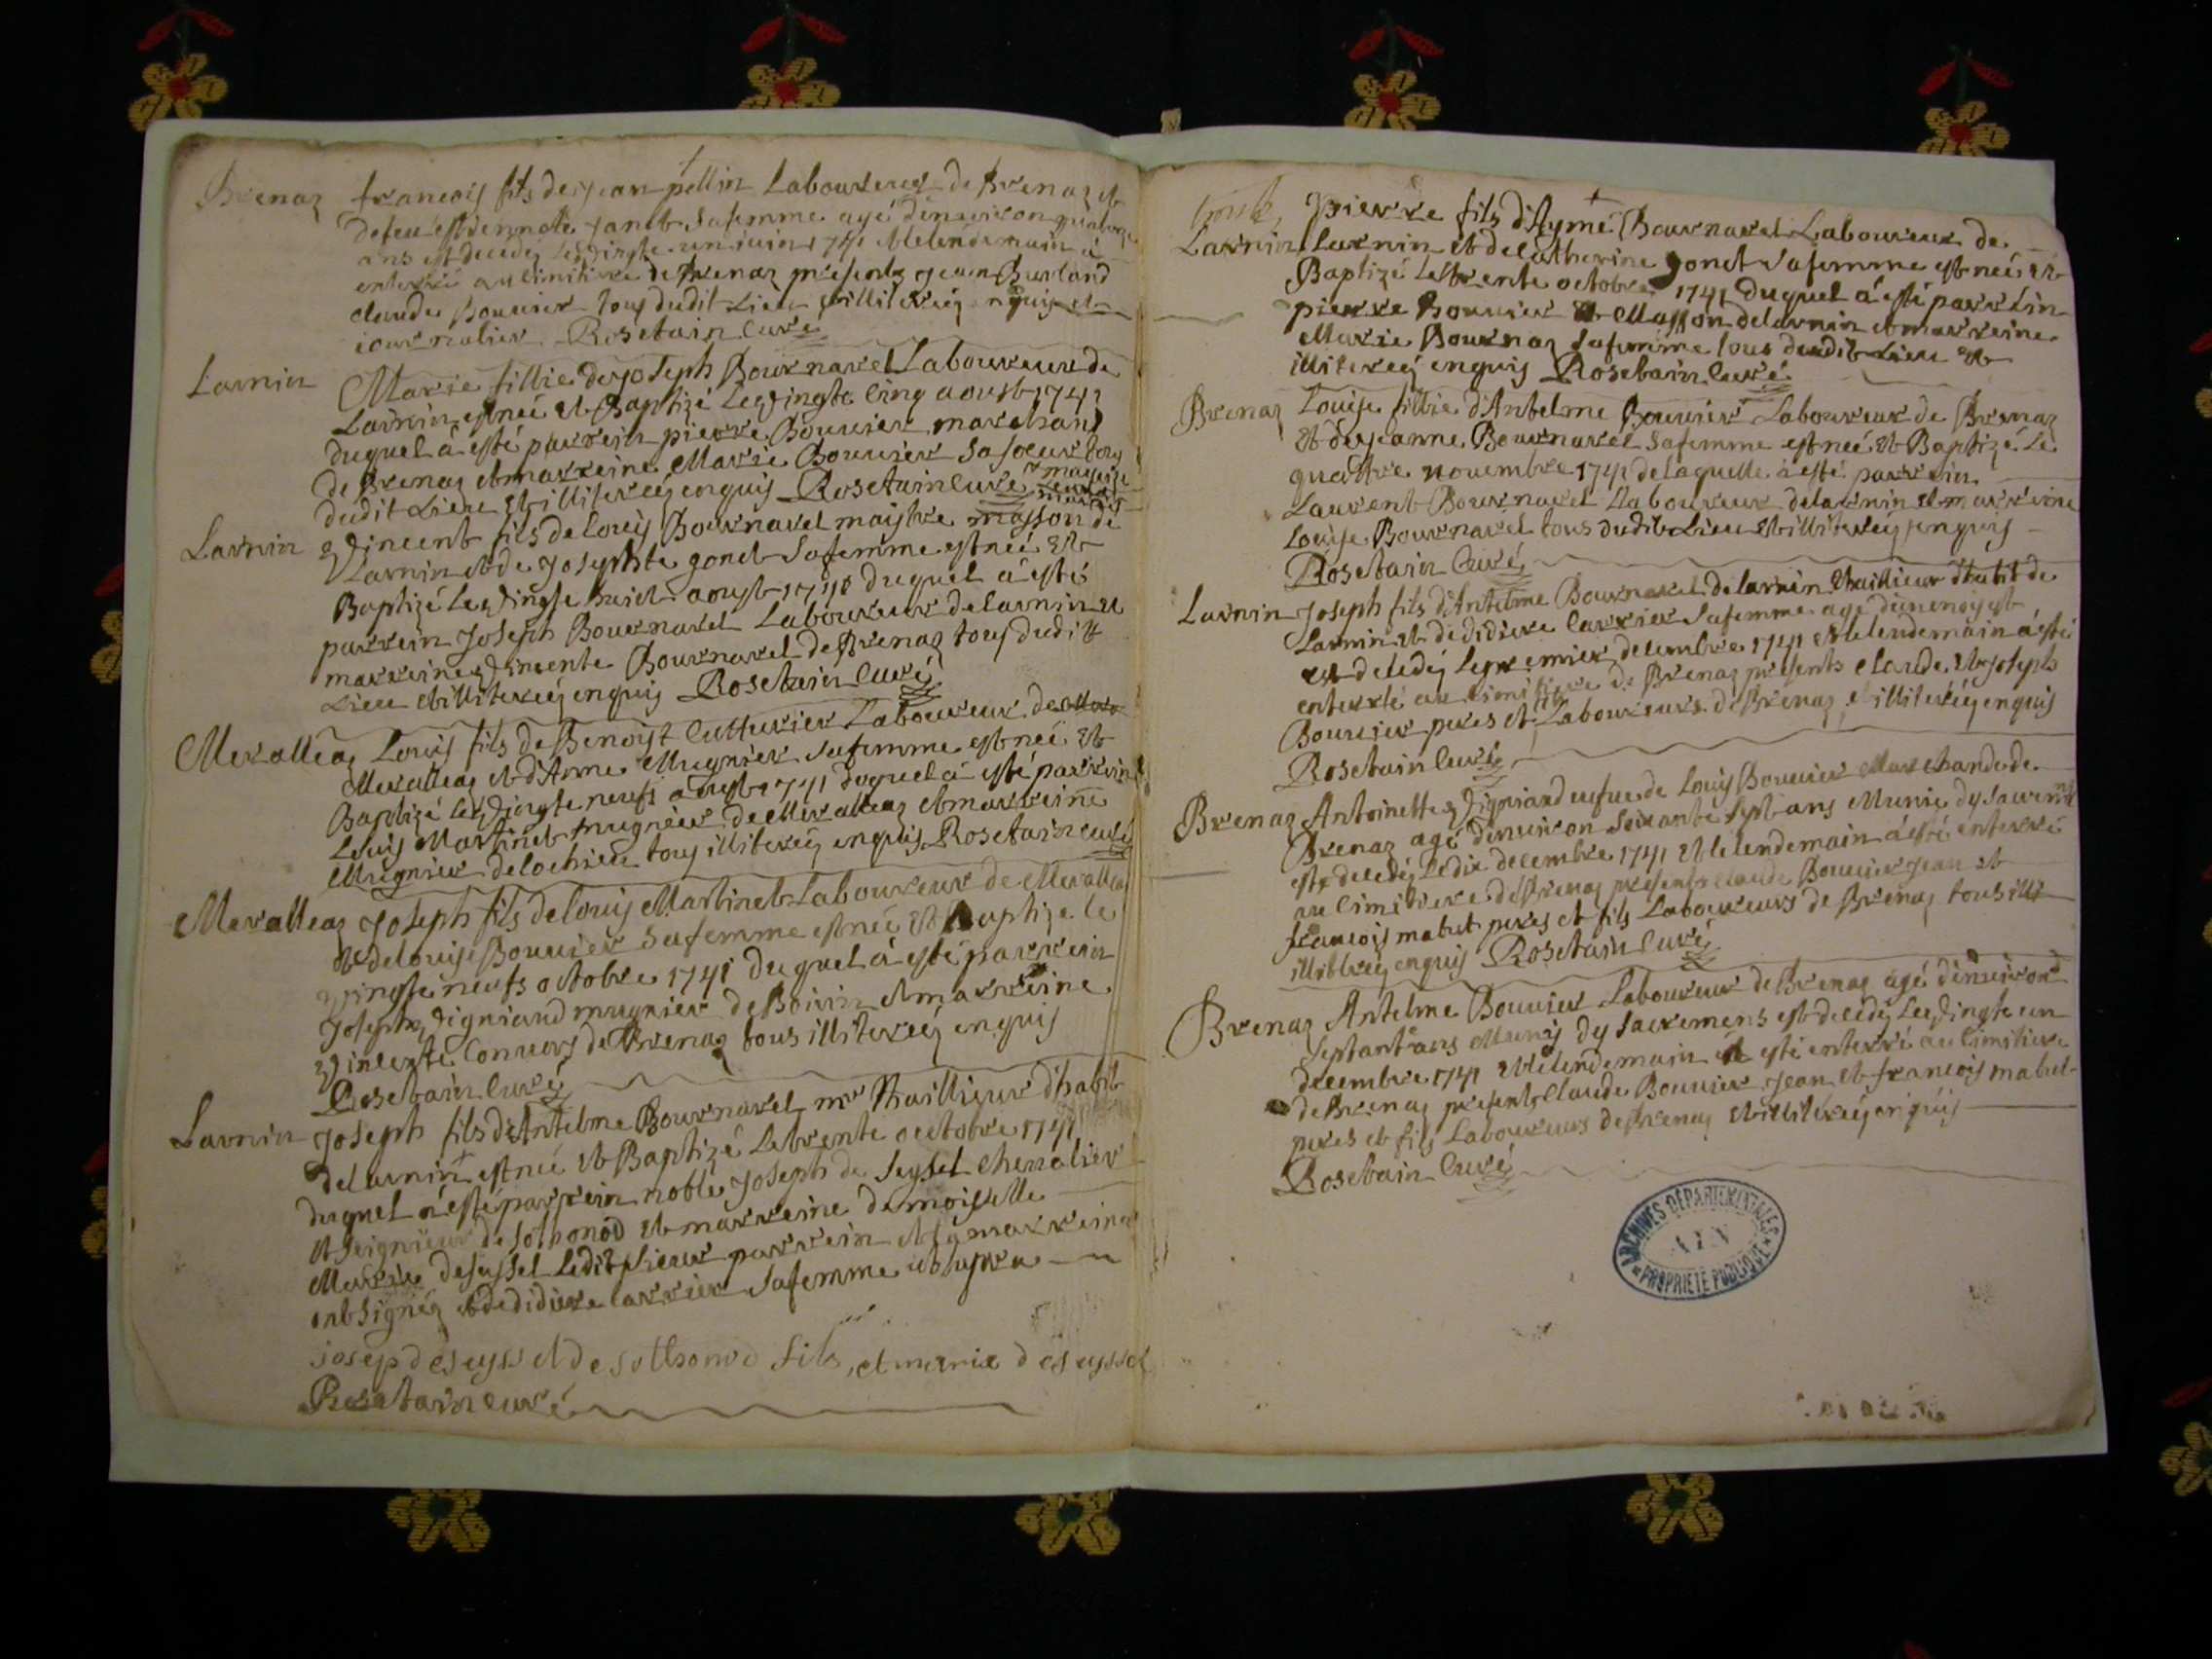 Brenaz françois fils de jean pellin Laboureur de Brenaz et
defeu estiennete janet Safemme agé denuiron quatorze
ans est decedez Levingte un iuin 1741 et lelendemain à
enterré au Cimitiere de Brenaz presents jean Burland
claude Bouuier tous dudit Lieu et illiterez enquis et
iournalier Rosetain Curé
Larnin Marie fillie de joseph Bournarel Laboureur de
Larnin est neé et Baptizé Levingte Cinq aoust 1741
duquel à esté parrein pierre Bouuier marchand
de Brenaz et marreine Marie Bouuier sa soeur tous
dudit Lieu et illiterez enquis Rosetain Curé
Larnin Vincent fils de Louis Bournarel maistre masson de
Larnin et de Josephte gonet Safemme est neé et
Baptizé Levingte huict aoust 1741 duquel à esté
parrein Joseph Bournarel Laboureur de Larnin et
marreine Vincente Bournarel de Brenaz tous dudit
Lieu et illiterez enquis Rosetain Curé
Meralleaz Louis fils de Benoist Cutturier Laboureur de
Meralleaz et d'Anne Mugnier Safemme est neé et
Baptizé Levingte neufs aoust 1741 duquel à esté parrein
Louis Martinet mugnier de Meralleaz et marreine
Mugnier de Lochieu tous illiterez enquis Rosetain Curé
Meralleaz Joseph fils de Louis Martinet Laboureur de Meralleaz
et de Louise Bouuier Safemme est neé et Baptize le
vingte neufs octobre 1741 duquel à esté parrein
Joseph Vigniand mugnier de Boirin et marreine
Vincente Conuers de Brenaz tous illiterez enquis
Rosetain Curé
Larnin Joseph fils d'Antelme Bournarel mre Thaillieur d'habit
de Larnin + est neé et Baptizé Letrente octobre 1741
duquel à esté parrein noble Joseph de Seyssel Cheualier
et Seignieur de Sothonod et marreine demoiselle
Marie deseyssel Ledit Sieur parrein et la marreine
ont signéz + et de didiere Carrier Safemme ut supra
josep deseyssel de sothonod fils, et marie deseyssel
Rosetain curé
Larnin Pierre fils d'Aymé Bournarel Laboureur de
Larnin et de Catherine gonet Safemme est neé et
Baptizé Letrente octobre 1741 duquel à esté parrein
pierre Bouuier Masson de Larnin et marreine
Marie Bournaz Safemme tous dudit Lieu et
illiterez enquis Rosetain Curé
Brenaz Louise fillie d'Antelme Bouuier Laboureur de Brenaz
et de jeanne Bournarel Safemme est neé et Baptizé Le
quattre nouembre 1741 de laquelle à esté parrein
Laurent Bournarel Laboureur de Larnin et marreine
Louise Bournarel tous dudit Lieu et illiterez enquis
Rosetain Curé
Larnin Joseph fils d'Antelme Bournarel de Larnin Thaillieur d'habit de
Larnin et de didiere Carrier Safemme agé
decedéz Lepremier decembre 1741 et lelendemain à esté
enterré au Cimitiere de Brenaz presents claude et joseph
Bouuier peres et Laboureurs de Brenaz et illiterez enquis
Rosetain Curé
Brenaz Antoinette Vigniand uefue de Louis Bouuier Marchand de
Brenaz agé denuiron Soixante Sept ans Munie dy sacremts
est decedéz Ledix decembre 1741 et lelendemain à esté enterré
au Cimitiere de Brenaz presents claude Bouuier jean et
françois mabut peres et fils Laboureurs de Brenaz tous illi
illitterez enquis Rosetain Curé
Brenaz Antelme Bouuier Laboureur de Brenaz agé denuiron
Septant'ans Muny dy Sacremens est decedéz Levingte un
decembre 1741 et lelendemain à esté enterré au Cimitiere
de Brenaz presents Claude Bouuier jean et francois mabut
peres et fils Laboureurs de Brenaz et illiterez enquis
Rosetain Curé
ARCHIVES DÉPARTEMENTALES
AIN
PROPRIETE PUBLIQUE